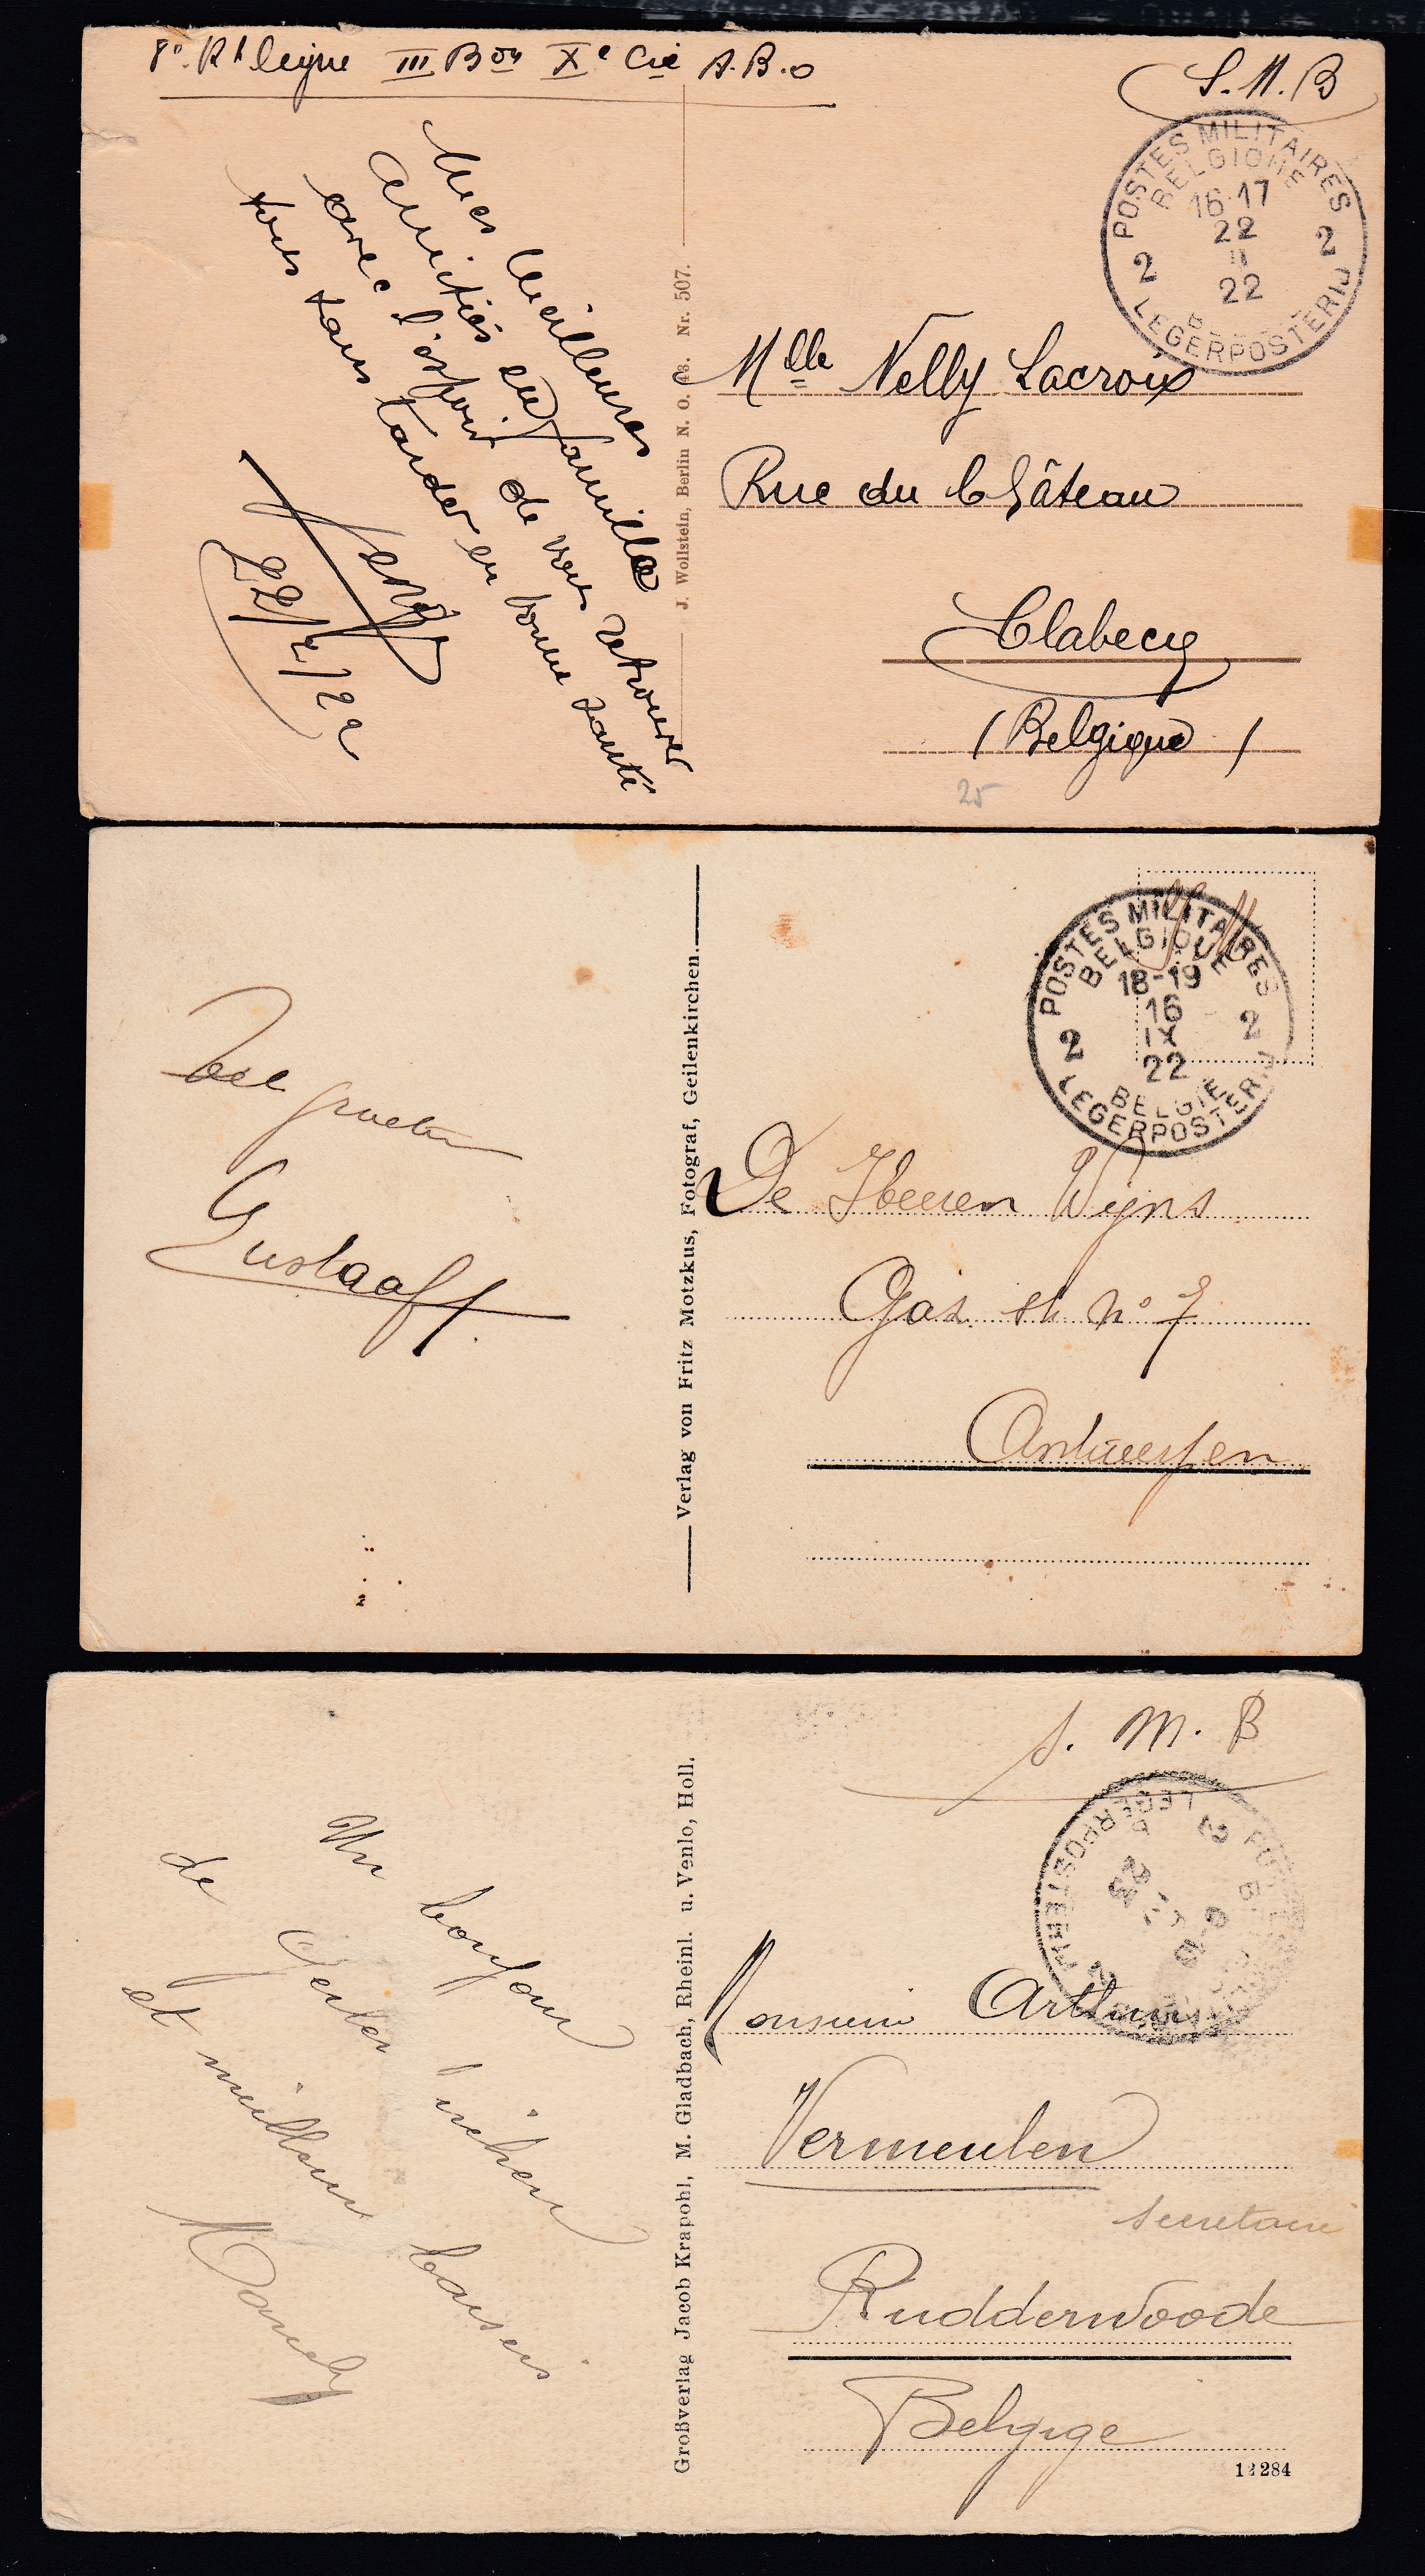 8e Rt ligne III Bon Xe Cie A.B.O
S.M.B
POSTES MILITAIRES
BELGIQUE
16-17
22
II
22
2 2
LEGERPOSTERIJ
Mes meilleures
amitiés en famille
avec l'espoir de vous retrouver
tous sans tarder en bonne santé
22/2/22
J. Wollstein, Berlin N. O. 43. Nr. 507.
Mlle Nelly Lacroix
Rue du Château
Clabecq
(Belgique)
25
POSTES MILITAIRES
BELGIQUE
18-19
16
IX
22
2 2
BELGIE
LEGERPOSTERIJ
Veel groeten
Gustaaf
Verlag von Fritz Motzkus, Fotograf, Geilenkirchen.
De Heeren Wijns
Gas st No 7
Antwerpen
S. M. B
LEGERPOSTERIJ
2 2
23
Un bonjour
de
et meilleurs baisers
Großverlag Jacob Krapohl, M. Gladbach, Rheinl. u. Venlo, Holl.
Monsieur Arthur
Vermeulen
secretaire
Ruddervoorde
Belgique
12284